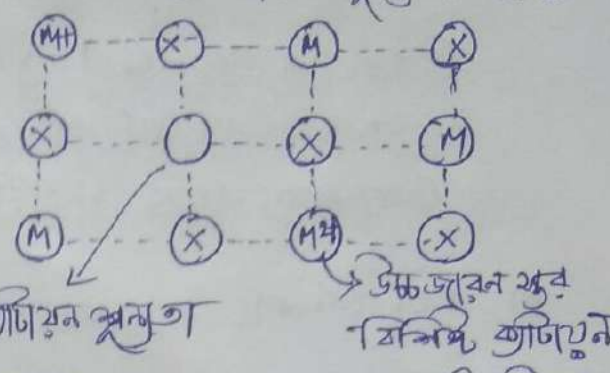 M+ X⁻ M X
X X M
M X M²⁺ X
ক্যাটায়ন শূন্যতা
উচ্চ জারন স্তর
বিশিষ্ট ক্যাটায়ন